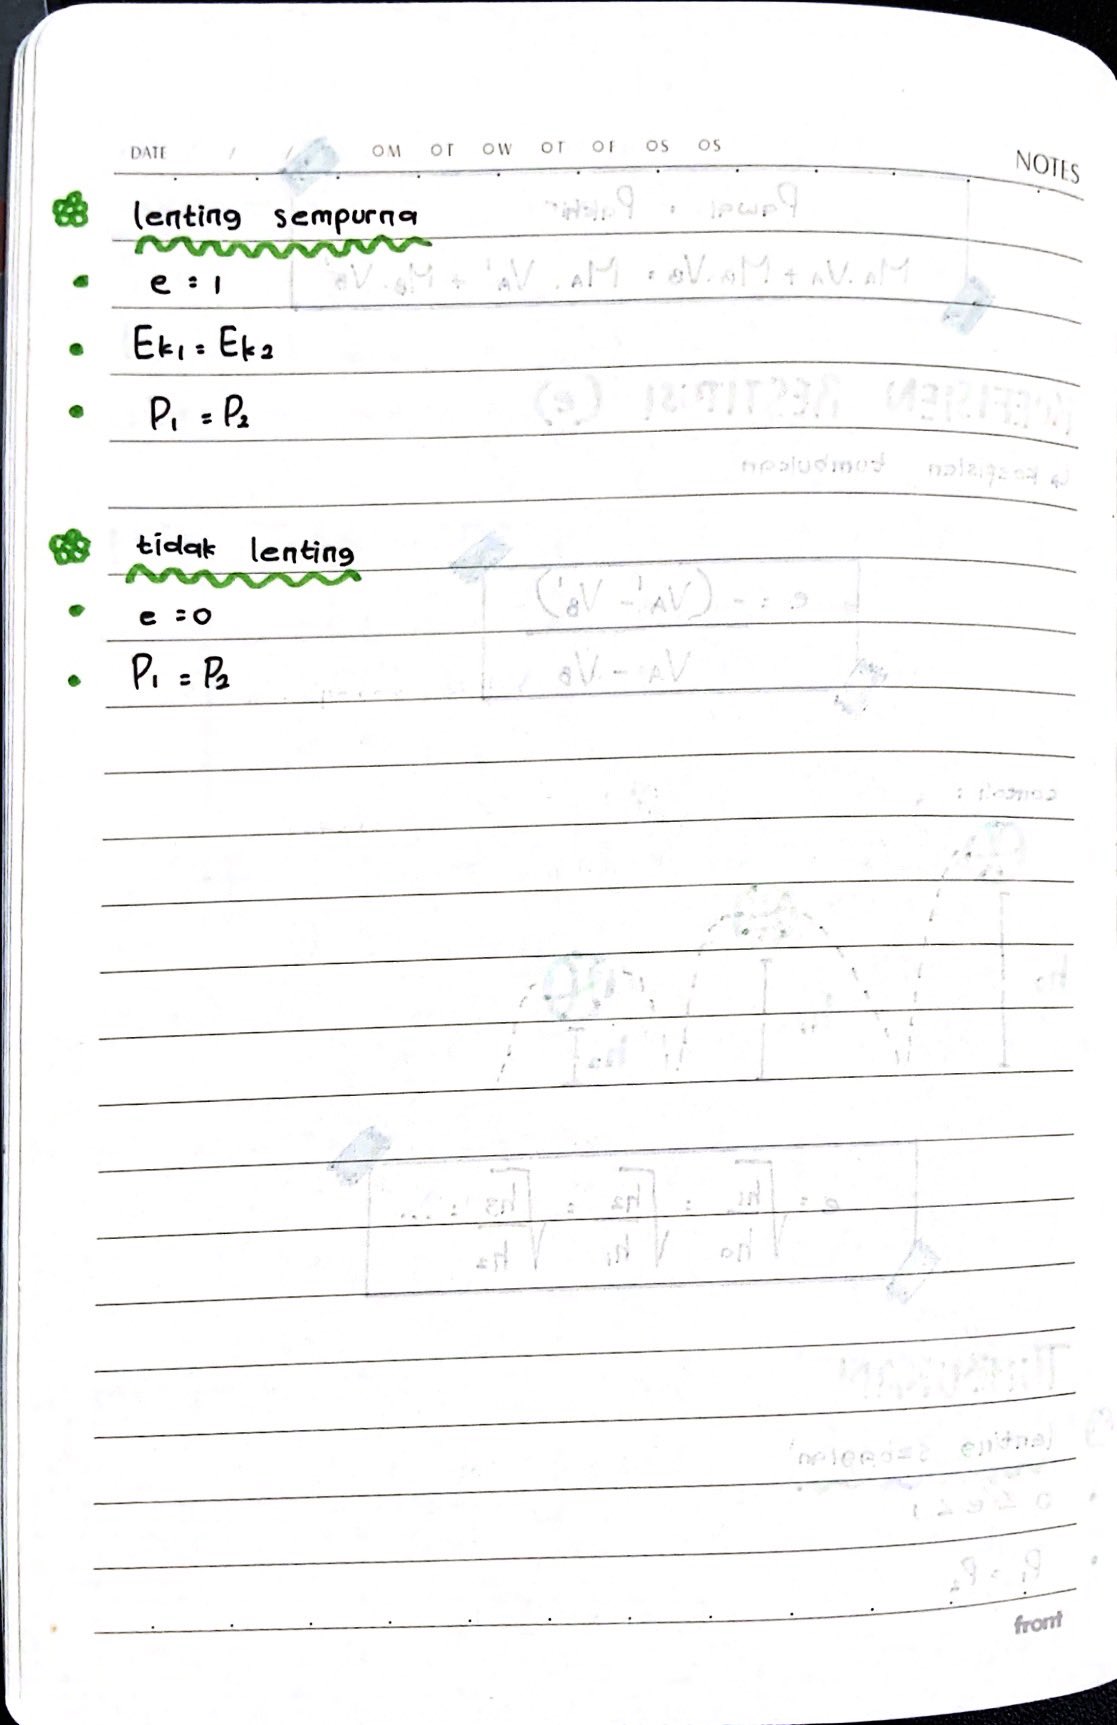 DATE / / OM OT OW OT OF OS OS
NOTES
lenting sempurna
e = 1
Ek1 = Ek2
P1 = P2
tidak lenting
e = 0
P1 = P2
front